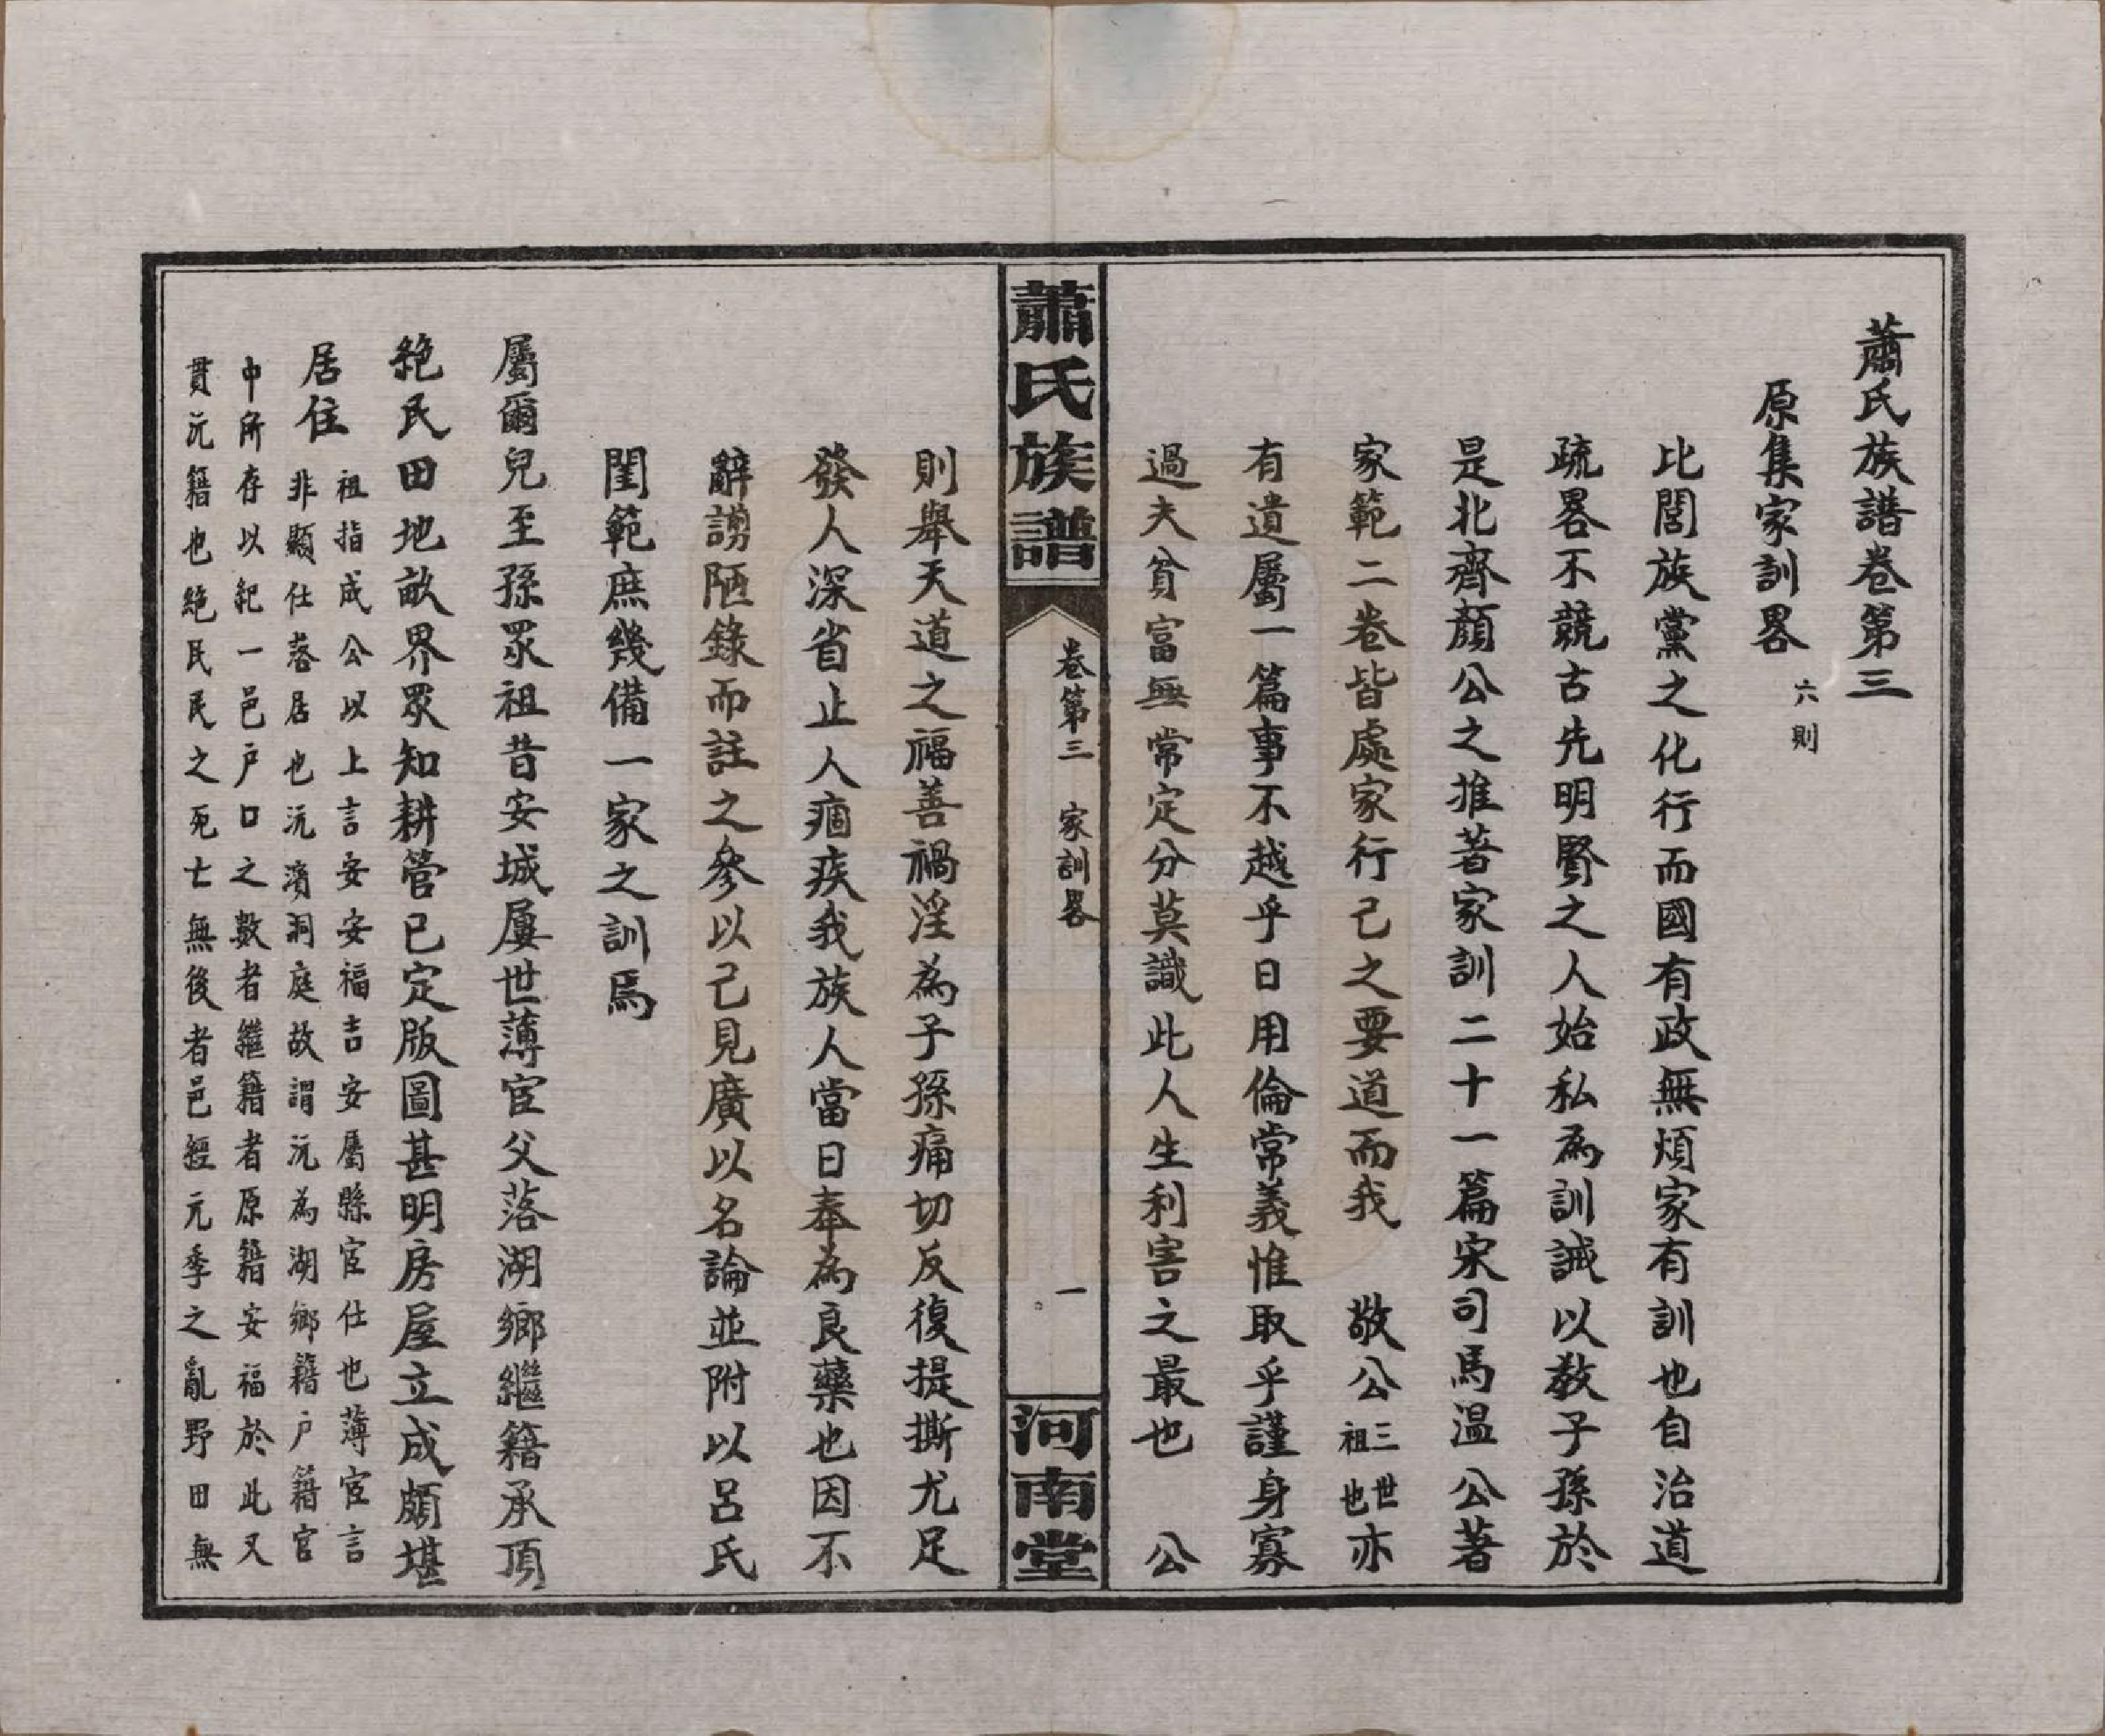 蕭氏族譜卷第三
原集家訓畧 六則
比閭族黨之化行而國有政無煩家有訓也自治道
疏畧不競古先明賢之人始私為訓誡以教子孫於
是北齊顏公之推著家訓二十一篇宋司馬温公著
家範二卷皆處家行己之要道而我 敬公三世祖也亦
有遺屬一篇事不越乎日用倫常義惟取乎謹身寡
過夫貧富無常定分莫識此人生利害之最也 公
蕭氏族譜 卷第三 家訓畧 一 河南堂
則舉天道之福善禍淫為子孫痛切反復提撕尤足
發人深省止人痼疾我族人當日奉為良藥也因不
辭謭陋錄而註之參以己見廣以名論並附以呂氏
閨範庶幾備一家之訓焉
屬爾兒至孫眾祖昔安城屢世薄宦父落湖鄉繼籍承頂
絕民田地畝界眾知耕管已定版圖甚明房屋立成頗堪
居住
祖指成公以上言安安福吉安屬縣宦仕也薄宦言
非顯仕落居也沅濱洞庭故謂沅為湖鄉籍户籍官
中所存以紀一邑户口之數者繼籍者原籍安福於此又
貫沅籍也絕民民之死亡無後者邑經元季之亂野田無